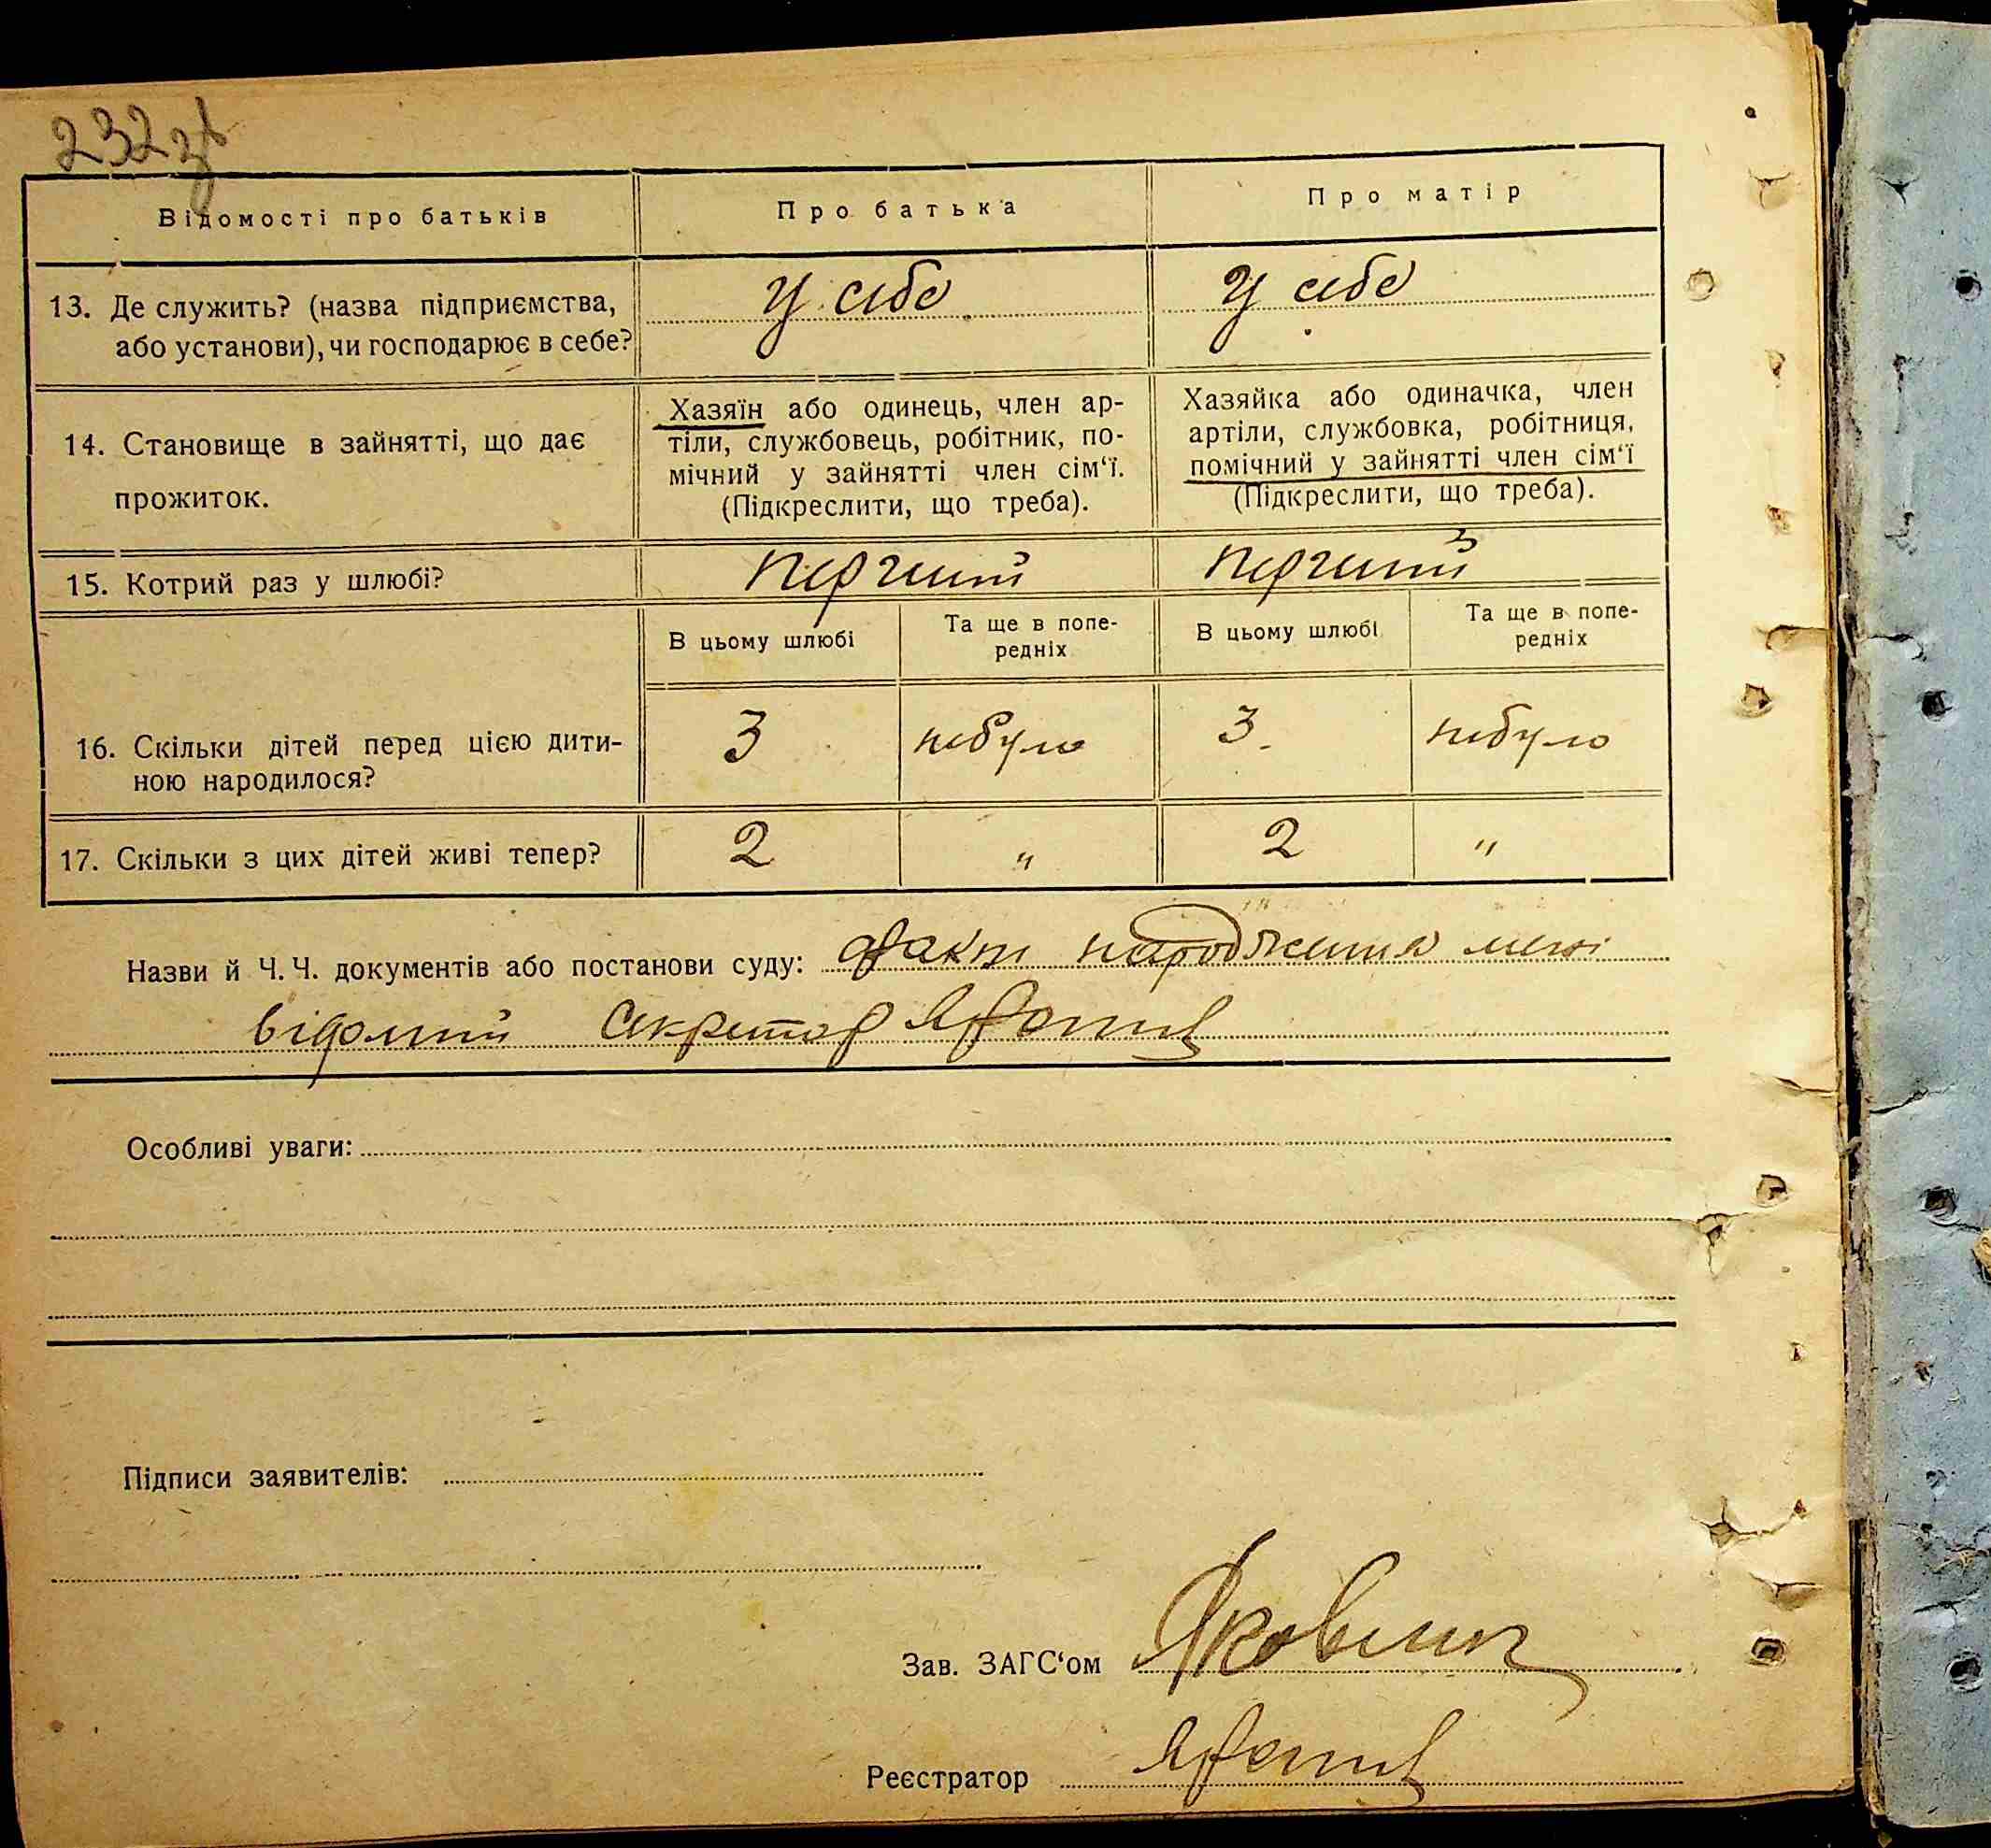 232 зв
Відомості про батьків
Про батька
Про матір
13. Де служить? (назва підприємства,
або установи), чи господарює в себе?
у себе
у себе
14. Становище в зайнятті, що дає
прожиток.
Хазяїн або одинець, член ар-
тіли, службовець, робітник, по-
мічний у зайнятті член сім‘ї.
(Підкреслити, що треба).
Хазяйка або одиначка, член
артіли, службовка, робітниця,
помічний у зайнятті член сім‘ї
(Підкреслити, що треба).
15. Котрий раз у шлюбі?
перший
перший
В цьому шлюбі
Та ще в попе-
редніх
В цьому шлюбі
Та ще в попе-
редніх
16. Скільки дітей перед цією дити-
ною народилося?
3
небуло
3
небуло
17. Скільки з цих дітей живі тепер?
2
"
2
"
Назви й Ч. Ч. документів або постанови суду: факт народження мені
відомий секретар
Особливі уваги:
Підписи заявителів:
Зав. ЗАГС‘ом
Реєстратор